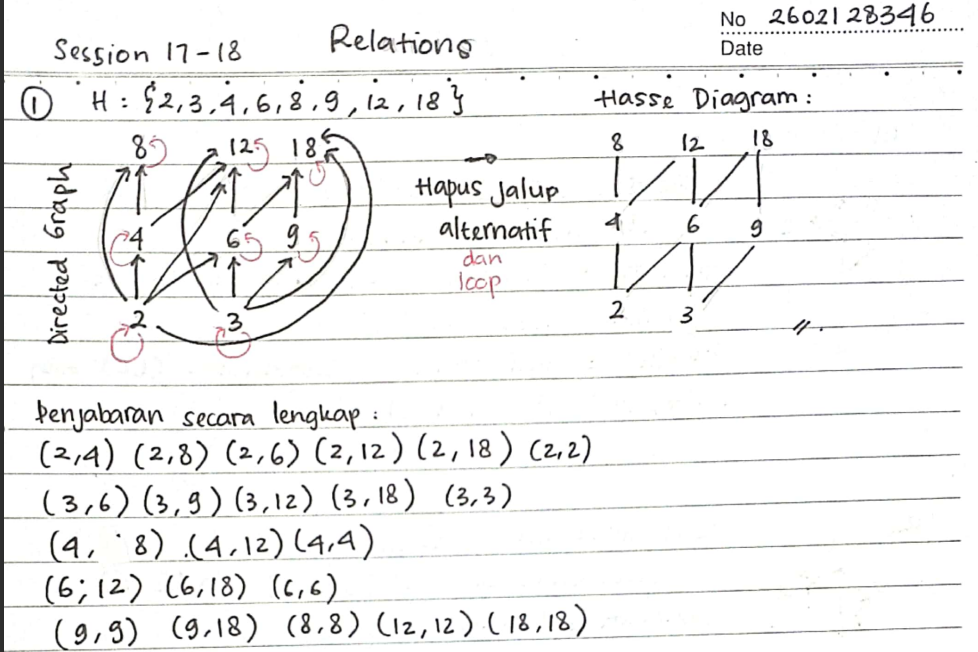 No 2602128346
Date
Session 17-18 Relations
① H : {2,3,4,6,8,9,12,18}
Hasse Diagram :
Directed Graph
8 12 18
4 6 9
2 3
→
Hapus jalup
alternatif
dan
loop
8 12 18
4 6 9
2 3
Penjabaran secara lengkap :
(2,4) (2,8) (2,6) (2,12) (2,18) (2,2)
(3,6) (3,9) (3,12) (3,18) (3,3)
(4, 8) (4,12) (4,4)
(6;12) (6,18) (6,6)
(9,9) (9,18) (8,8) (12,12) (18,18)